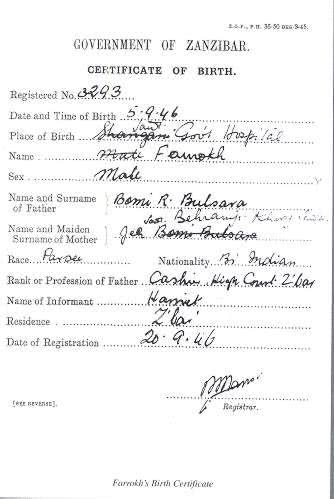 Z.G.P., P.H. 35 50 DEC-3-45.
GOVERNMENT OF ZANZIBAR.
CERTIFICATE OF BIRTH.
Registered No. 3293
Date and Time of Birth 5-9-46
Place of Birth Shangani Gov't Hospital
Name Farrokh
Sex Male
Name and Surname of Father Bomi R. Bulsara
Name and Maiden Surname of Mother Jer Bomi Bulsara
Race Parsee Nationality Bi. Indian
Rank or Profession of Father Cashier High Court Z'bar
Name of Informant
Residence Z'bar
Date of Registration 20-9-46
Registrar.
[SEE REVERSE].
Farrokh's Birth Certificate